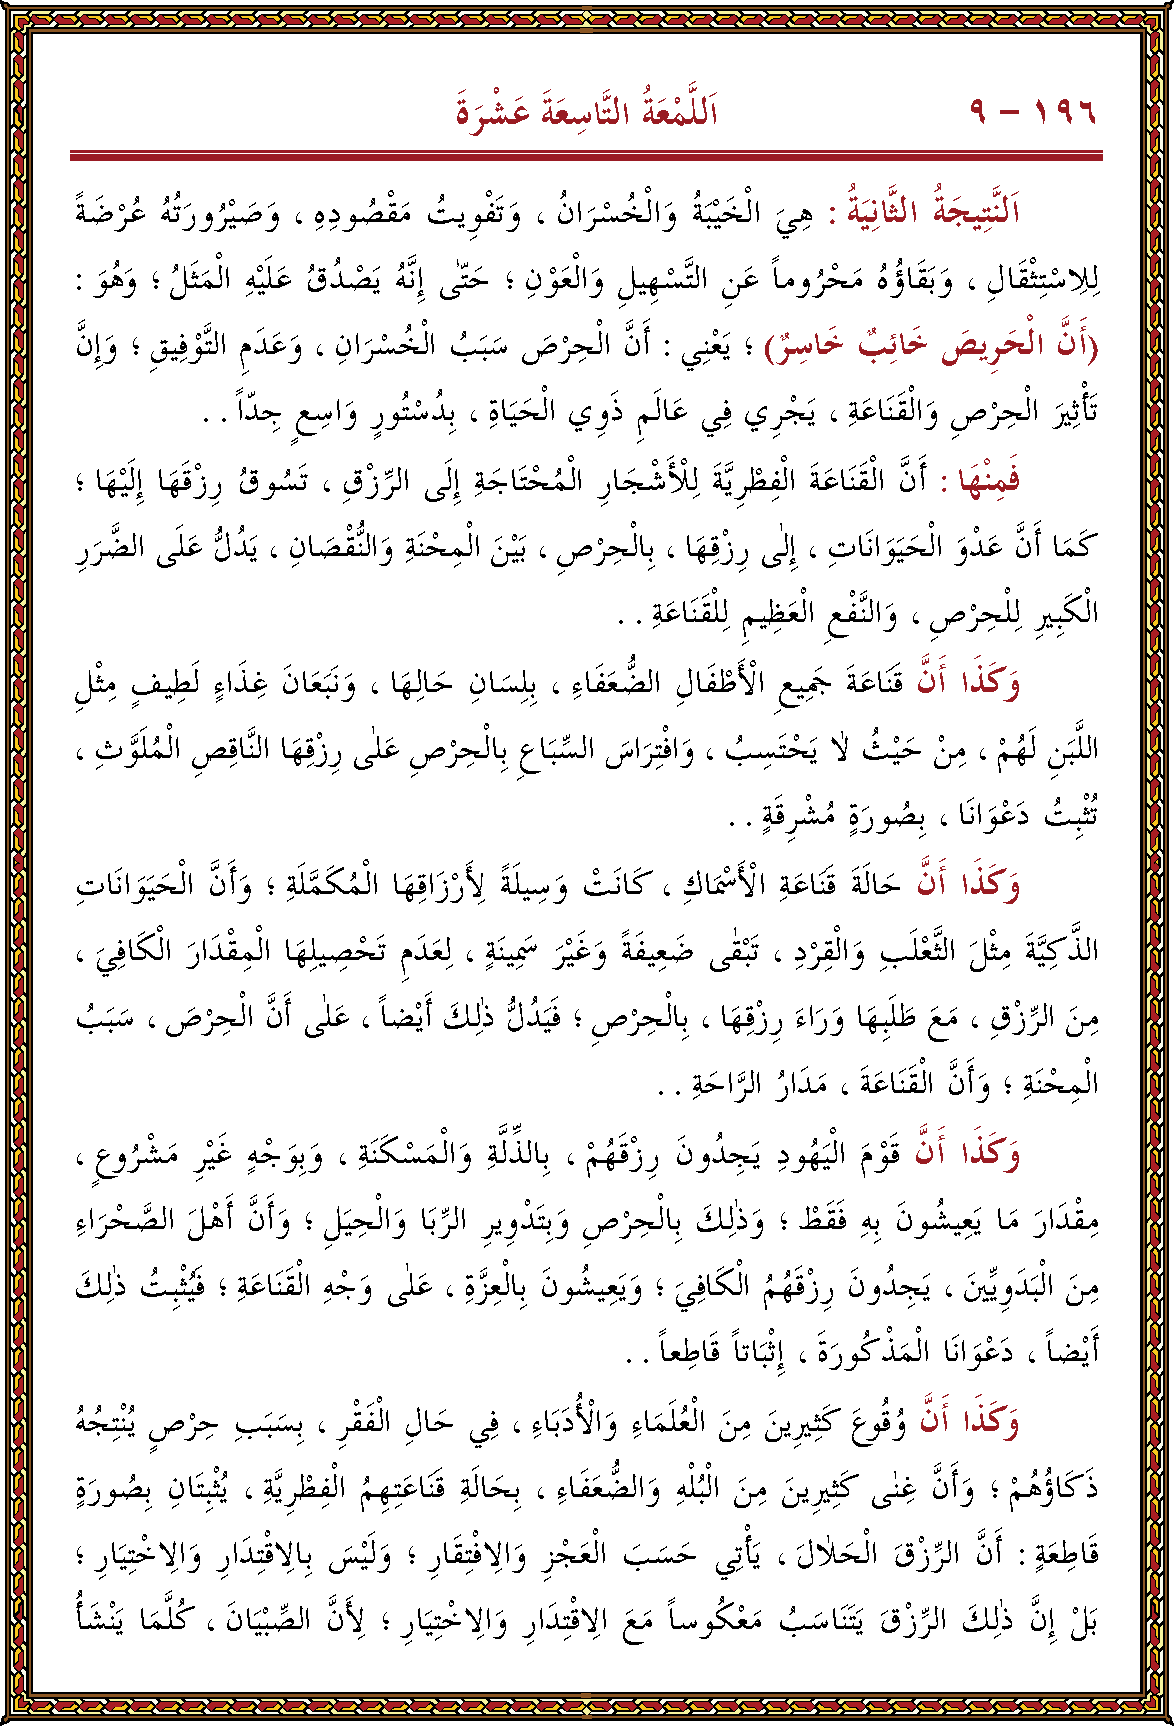 ١٩٦ – ٩
اَللَّمْعَةُ التَّاسِعَةَ عَشْرَةَ
اَلنَّتِيجَةُ الثَّانِيَةُ : هِيَ الْخَيْبَةُ وَالْخُسْرَانُ ، وَتَفْوِيتُ مَقْصُودِهِ ، وَصَيْرُورَتُهُ عُرْضَةً
لِلِاسْتِثْقَالِ ، وَبَقَاؤُهُ مَحْرُوماً عَنِ التَّسْهِيلِ وَالْعَوْنِ ؛ حَتّٰى إِنَّهُ يَصْدُقُ عَلَيْهِ الْمَثَلُ ؛ وَهُوَ :
(أَنَّ الْحَرِيصَ خَائِبٌ خَاسِرٌ) ؛ يَعْنِي : أَنَّ الْحِرْصَ سَبَبُ الْخُسْرَانِ ، وَعَدَمِ التَّوْفِيقِ ؛ وَإِنَّ
تَأْثِيرَ الْحِرْصِ وَالْقَنَاعَةِ ، يَجْرِي فِي عَالَمِ ذَوِي الْحَيَاةِ ، بِدُسْتُورٍ وَاسِعٍ جِدّاً . .
فَمِنْهَا : أَنَّ الْقَنَاعَةَ الْفِطْرِيَّةَ لِلْأَشْجَارِ الْمُحْتَاجَةِ إِلَى الرِّزْقِ ، تَسُوقُ رِزْقَهَا إِلَيْهَا ؛
كَمَا أَنَّ عَدْوَ الْحَيَوَانَاتِ ، إِلٰى رِزْقِهَا ، بِالْحِرْصِ ، بَيْنَ الْمِحْنَةِ وَالنُّقْصَانِ ، يَدُلُّ عَلَى الضَّرَرِ
الْكَبِيرِ لِلْحِرْصِ ، وَالنَّفْعِ الْعَظِيمِ لِلْقَنَاعَةِ . .
وَكَذَا أَنَّ قَنَاعَةَ جَمِيعِ الْأَطْفَالِ الضُّعَفَاءِ ، بِلِسَانِ حَالِهَا ، وَنَبَعَانَ غِذَاءٍ لَطِيفٍ مِثْلِ
اللَّبَنِ لَهُمْ ، مِنْ حَيْثُ لَا يَحْتَسِبُ ، وَافْتِرَاسَ السِّبَاعِ بِالْحِرْصِ عَلٰى رِزْقِهَا النَّاقِصِ الْمُلَوَّثِ ،
تُثْبِتُ دَعْوَانَا ، بِصُورَةٍ مُشْرِقَةٍ . .
وَكَذَا أَنَّ حَالَةَ قَنَاعَةِ الْأَسْمَاكِ ، كَانَتْ وَسِيلَةً لِأَرْزَاقِهَا الْمُكَمَّلَةِ ؛ وَأَنَّ الْحَيَوَانَاتِ
الذَّكِيَّةَ مِثْلَ الثَّعْلَبِ وَالْقِرْدِ ، تَبْقٰى ضَعِيفَةً وَغَيْرَ سَمِينَةٍ ، لِعَدَمِ تَحْصِيلِهَا الْمِقْدَارَ الْكَافِيَ ،
مِنَ الرِّزْقِ ، مَعَ طَلَبِهَا وَرَاءَ رِزْقِهَا ، بِالْحِرْصِ ؛ فَيَدُلُّ ذٰلِكَ أَيْضاً ، عَلٰى أَنَّ الْحِرْصَ ، سَبَبُ
الْمِحْنَةِ ؛ وَأَنَّ الْقَنَاعَةَ ، مَدَارُ الرَّاحَةِ . .
وَكَذَا أَنَّ قَوْمَ الْيَهُودِ يَجِدُونَ رِزْقَهُمْ ، بِالذِّلَّةِ وَالْمَسْكَنَةِ ، وَبِوَجْهٍ غَيْرِ مَشْرُوعٍ ،
مِقْدَارَ مَا يَعِيشُونَ بِهِ فَقَطْ ؛ وَذٰلِكَ بِالْحِرْصِ وَبِتَدْوِيرِ الرِّبَا وَالْحِيَلِ ؛ وَأَنَّ أَهْلَ الصَّحْرَاءِ
مِنَ الْبَدَوِيِّينَ ، يَجِدُونَ رِزْقَهُمُ الْكَافِيَ ؛ وَيَعِيشُونَ بِالْعِزَّةِ ، عَلٰى وَجْهِ الْقَنَاعَةِ ؛ فَيُثْبِتُ ذٰلِكَ
أَيْضاً ، دَعْوَانَا الْمَذْكُورَةَ ، إِثْبَاتاً قَاطِعاً . .
وَكَذَا أَنَّ وُقُوعَ كَثِيرِينَ مِنَ الْعُلَمَاءِ وَالْأُدَبَاءِ ، فِي حَالِ الْفَقْرِ ، بِسَبَبِ حِرْصٍ يُنْتِجُهُ
ذَكَاؤُهُمْ ؛ وَأَنَّ غِنٰى كَثِيرِينَ مِنَ الْبُلْهِ وَالضُّعَفَاءِ ، بِحَالَةِ قَنَاعَتِهِمُ الْفِطْرِيَّةِ ، يُثْبِتَانِ بِصُورَةٍ
قَاطِعَةٍ : أَنَّ الرِّزْقَ الْحَلَالَ ، يَأْتِي حَسَبَ الْعَجْزِ وَالِافْتِقَارِ ؛ وَلَيْسَ بِالِاقْتِدَارِ وَالِاخْتِيَارِ ؛
بَلْ إِنَّ ذٰلِكَ الرِّزْقَ يَتَنَاسَبُ مَعْكُوساً مَعَ الِاقْتِدَارِ وَالِاخْتِيَارِ ؛ لِأَنَّ الصِّبْيَانَ ، كُلَّمَا يَنْشَأُ